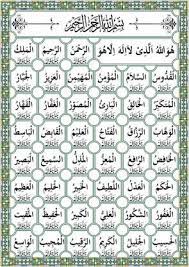 بِسْمِ اللهِ الرَّحْمٰنِ الرَّحِيْمِ
هُوَ اللهُ الَّذِیْ لَا اِلٰهَ اِلَّا هُوَ الرَّحْمٰنُ الرَّحِيْمُ الْمَلِكُ
الْقُدُّوْسُ السَّلَامُ الْمُؤْمِنُ الْمُهَيْمِنُ الْعَزِيْزُ الْجَبَّارُ
الْمُتَكَبِّرُ الْخَالِقُ الْبَارِئُ الْمُصَوِّرُ الْغَفَّارُ الْقَهَّارُ
الْوَهَّابُ الرَّزَّاقُ الْفَتَّاحُ الْعَلِيْمُ الْقَابِضُ الْبَاسِطُ
الْخَافِضُ الرَّافِعُ الْمُعِزُّ الْمُذِلُّ السَّمِيْعُ الْبَصِيْرُ
الْحَكَمُ الْعَدْلُ اللَّطِيْفُ الْخَبِيْرُ الْحَلِيْمُ الْعَظِيْمُ
الْغَفُوْرُ الشَّكُوْرُ الْعَلِيُّ الْكَبِيْرُ الْحَفِيْظُ الْمُقِيْتُ
الْحَسِيْبُ الْجَلِيْلُ الْكَرِيْمُ الرَّقِيْبُ الْمُجِيْبُ الْوَاسِعُ